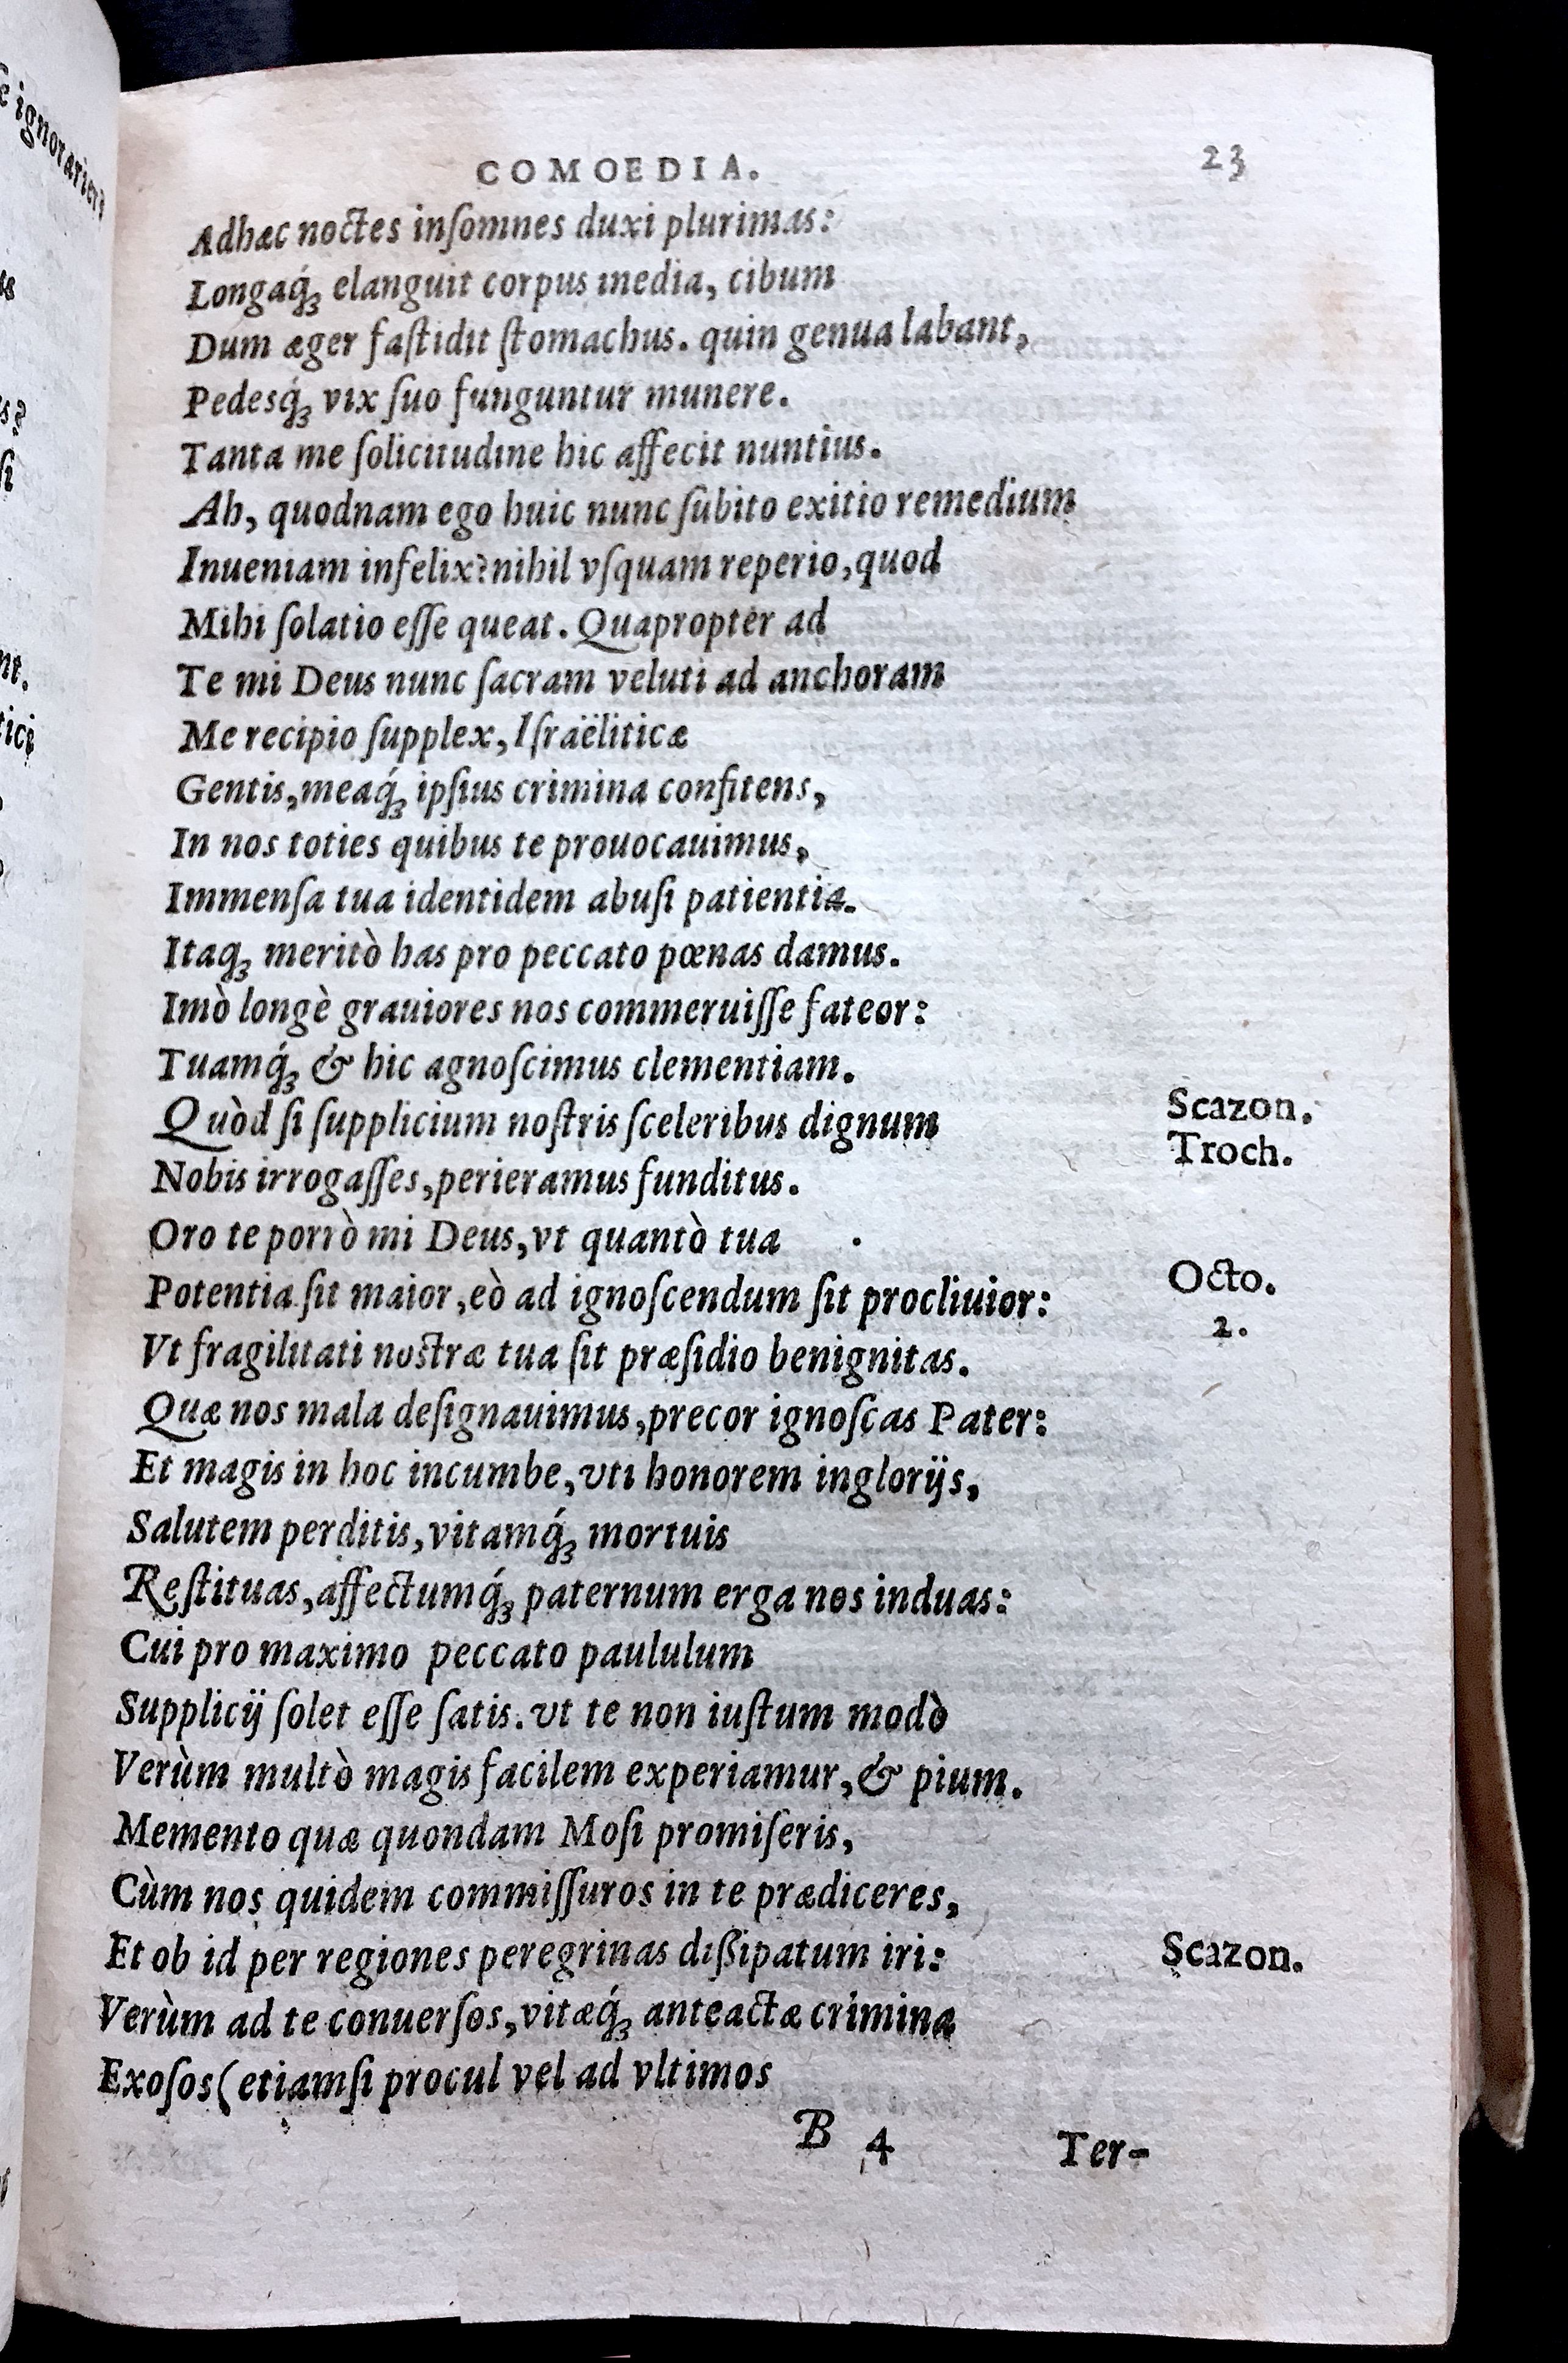 COMOEDIA. 23
Adhæc noctes inſomnes duxi plurimas:
Longaq́ꝫ elanguit corpus media, cibum
Dum æger faſtidit ſtomachus. quin genua labant,
Pedesq́ꝫ vix ſuo funguntur munere.
Tanta me ſolicitudine hic affecit nuntius.
Ah, quodnam ego huic nunc ſubito exitio remedium
Inueniam infelix? nihil vſquam reperio, quod
Mihi ſolatio eſſe queat. Quapropter ad
Te mi Deus nunc ſacram veluti ad anchoram
Me recipio ſupplex, Iſraëliticæ
Gentis, meaq́ꝫ ipſius crimina confitens,
In nos toties quibus te prouocauimus,
Immenſa tua identidem abuſi patientia.
Itaqꝫ meritò has pro peccato pœnas damus.
Imò longè grauiores nos commeruiſſe fateor:
Tuamq́ꝫ & hic agnoſcimus clementiam.
Quòd ſi ſupplicium noſtris ſceleribus dignum Scazon.
Nobis irrogaſſes, perieramus funditus. Troch.
Oro te porrò mi Deus, vt quantò tua
Potentia ſit maior, eò ad ignoſcendum ſit procliuior: Octo.
Vt fragilitati noſtræ tua ſit præſidio benignitas. 2.
Quæ nos mala deſignauimus, precor ignoſcas Pater:
Et magis in hoc incumbe, vti honorem inglorijs,
Salutem perditis, vitamq́ꝫ mortuis
Reſtituas, affectumq́ꝫ paternum erga nos induas:
Cui pro maximo peccato paululum
Supplicij ſolet eſſe ſatis. vt te non iuſtum modò
Verùm multò magis facilem experiamur, & pium.
Memento quæ quondam Moſi promiſeris,
Cùm nos quidem commiſſuros in te prædiceres,
Et ob id per regiones peregrinas dißipatum iri: Scazon.
Verùm ad te conuerſos, vitæq́ꝫ anteactæ crimina
Exoſos (etiamſi procul vel ad vltimos
B 4 Ter-